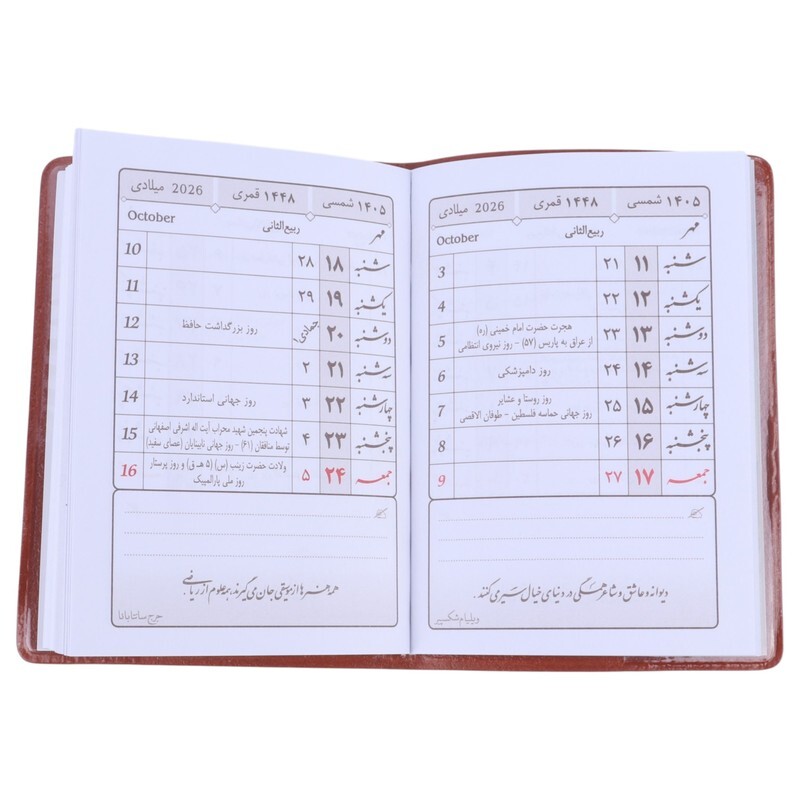 ۱۴۰۵ شمسی ۱۴۴۸ قمری 2026 میلادی
مهر ربیع‌الثانی October
شنبه ۱۱ ۲۱ 3
یکشنبه ۱۲ ۲۲ 4
دوشنبه ۱۳ ۲۳ هجرت حضرت امام خمینی (ره) 5
از عراق به پاریس (۵۷) - روز نیروی انتظامی
سه‌شنبه ۱۴ ۲۴ روز دامپزشکی 6
چهارشنبه ۱۵ ۲۵ روز روستا و عشایر 7
روز جهانی حماسه فلسطین - طوفان الاقصی
پنجشنبه ۱۶ ۲۶ 8
جمعه ۱۷ ۲۷ 9
دیوانه و عاشق و شاعر همگی در دنیای خیال سیر می‌کنند.
ویلیام شکسپیر
۱۴۰۵ شمسی ۱۴۴۸ قمری 2026 میلادی
مهر ربیع‌الثانی October
شنبه ۱۸ ۲۸ 10
یکشنبه ۱۹ ۲۹ 11
دوشنبه ۲۰ جمادی۱ روز بزرگداشت حافظ 12
سه‌شنبه ۲۱ ۲ 13
چهارشنبه ۲۲ ۳ روز جهانی استاندارد 14
پنجشنبه ۲۳ ۴ شهادت پنجمین شهید محراب آیت اله اشرفی اصفهانی 15
توسط منافقان (۶۱) - روز جهانی نابینایان (عصای سفید)
جمعه ۲۴ ۵ ولادت حضرت زینب (س) (۵ هـ ق) و روز پرستار 16
روز ملی پارالمپیک
همه هنرها از موسیقی جان می‌گیرند، همه علوم از ریاضی.
جرج سانتایانا